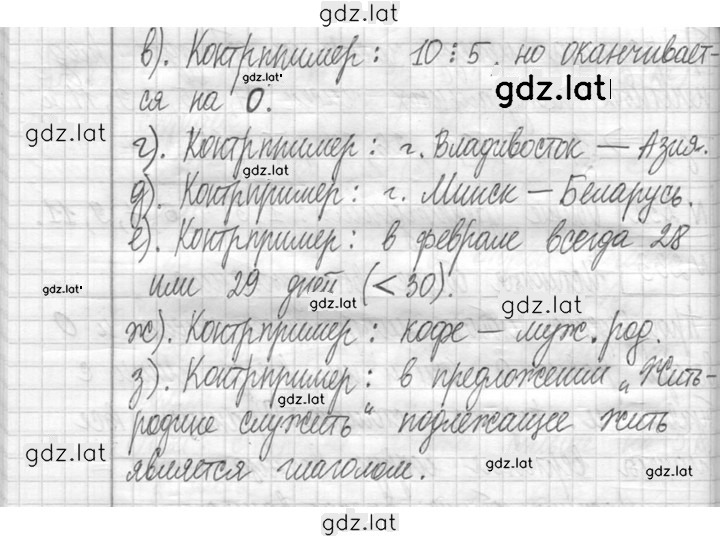 gdz.lat
в). Контрпример: 10⋮5. но оканчивает-
gdz.lat
gdz.lat
ся на 0.
gdz.lat
г). Контрпример: г. Владивосток — Азия.
gdz.lat
д). Контрпример: г. Минск — Беларусь.
е). Контрпример: в феврале всегда 28
gdz.lat
или 29 дней (< 30).
gdz.lat
gdz.lat
ж). Контрпример: кофе — муж. род.
з). Контрпример: в предложении „Жить-
gdz.lat
родине служить“ подлежащее жить
gdz.lat
является глаголом.
gdz.lat
gdz.lat
gdz.lat